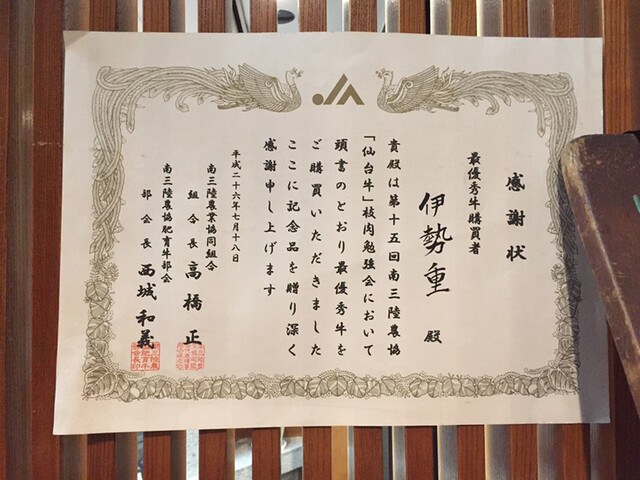 感謝状
最優秀牛購買者
伊勢重 殿
貴殿は第十五回南三陸農協
「仙台牛」枝肉勉強会において
頭書のとおり最優秀牛を
ご購買いただきました
ここに記念品を贈り深く
感謝申し上げます
平成二十六年七月十八日
南三陸農業協同組合
組合長 高橋 正
南三陸農協肥育牛部会
部会長 西城 和義